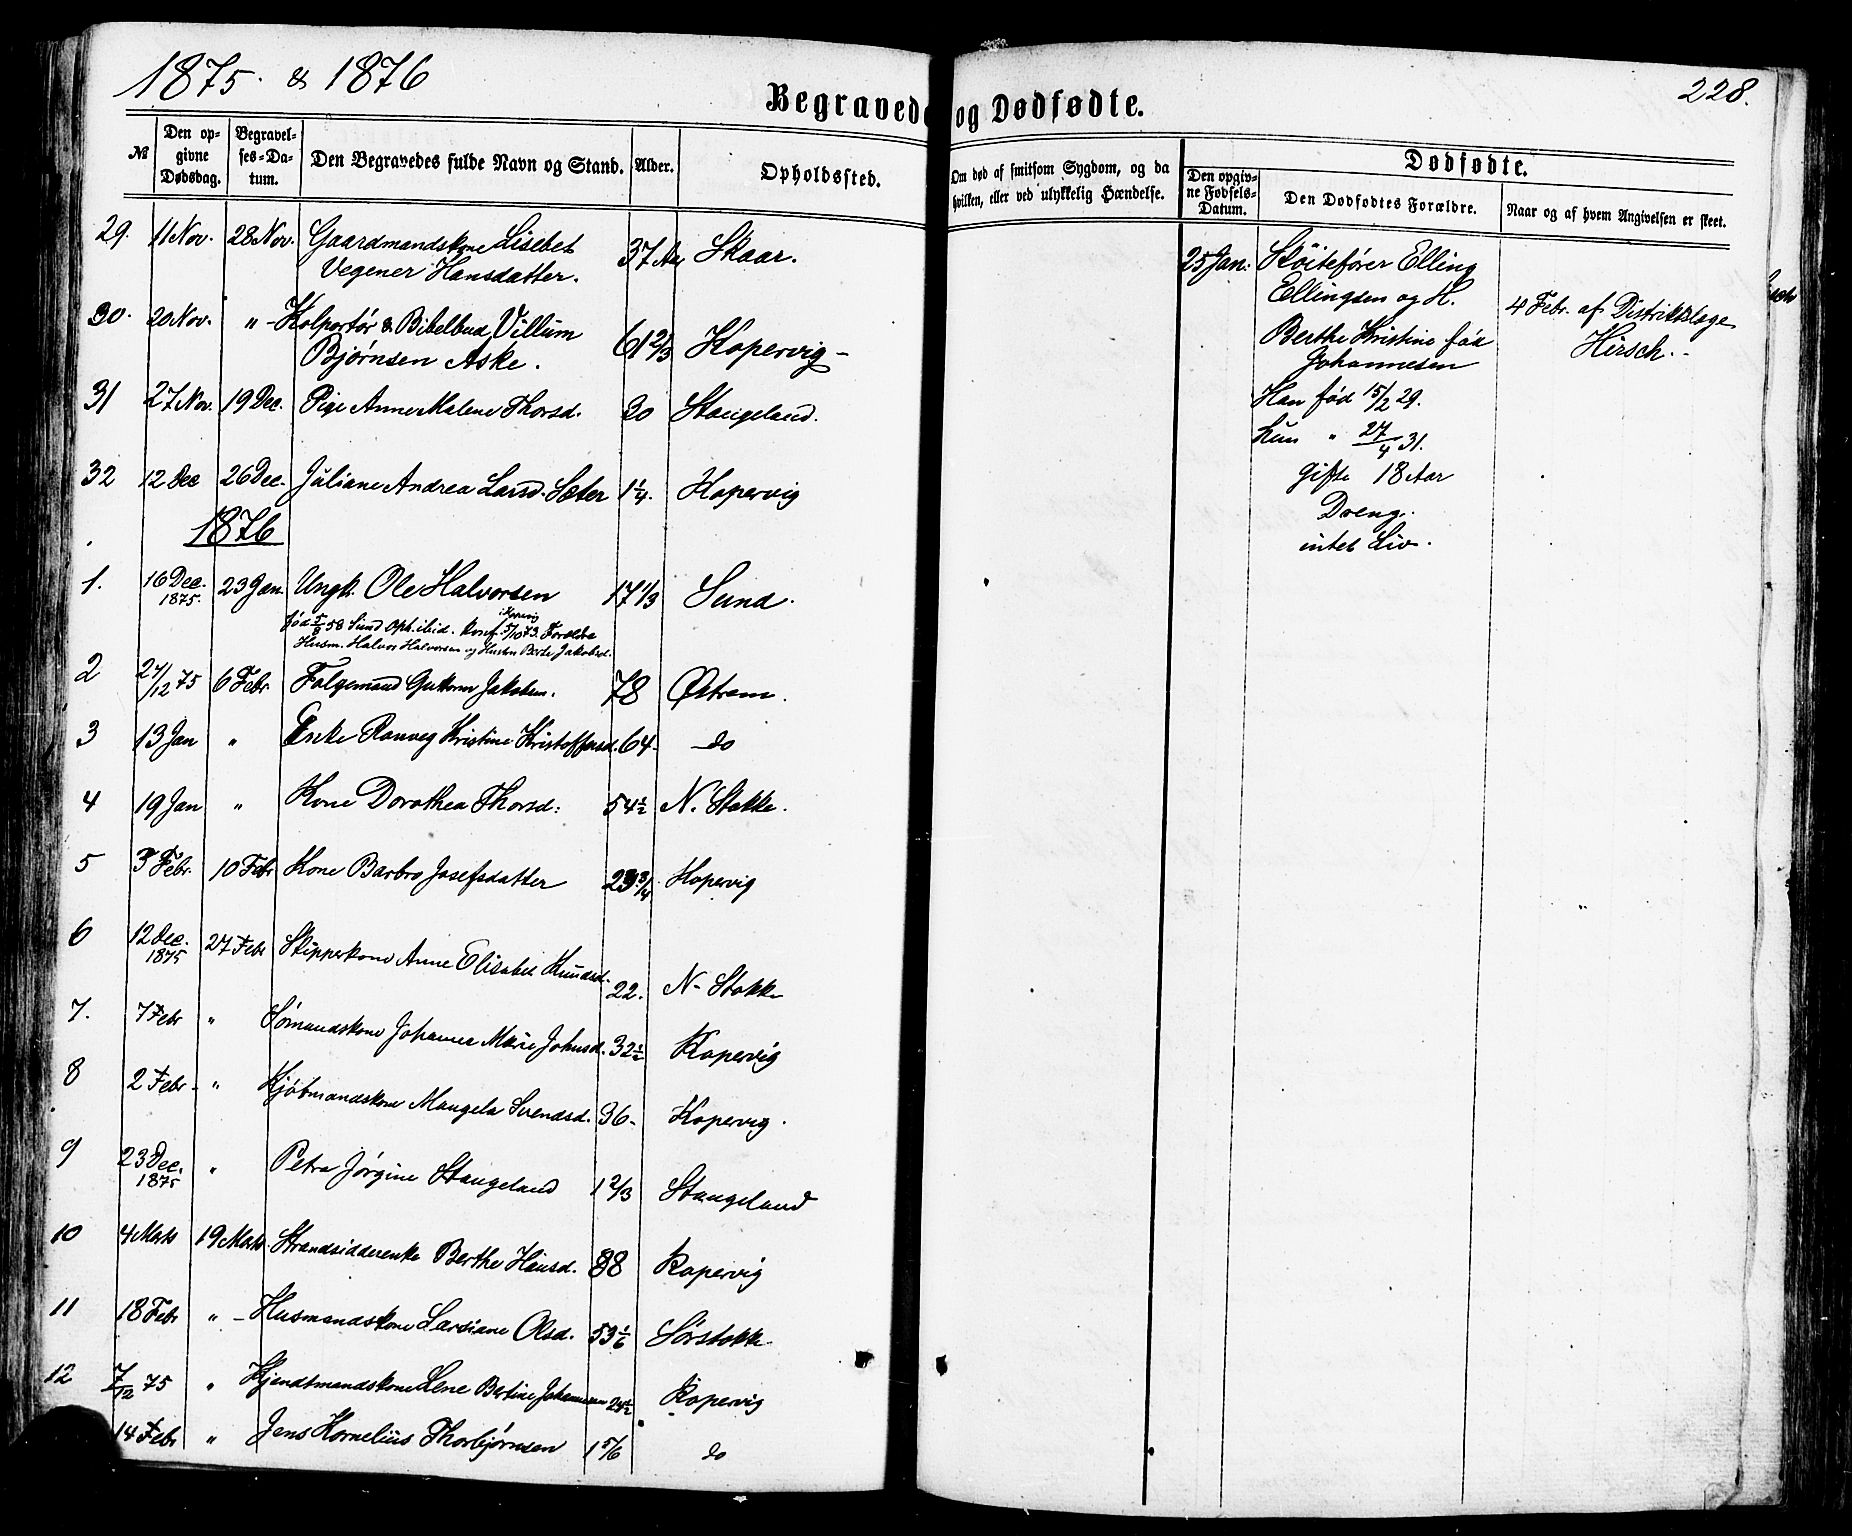 1875. & 1876
228.
Begravede og Dødfødte.
№ Den opgivne Dødsdag. Begravelses-Datum. Den Begravedes fulde Navn og Stand. Alder. Opholdssted.
Om død af smitsom Sygdom, og da hvilken, eller ved ulykkelig Hændelse.
Dødfødte.
Den opgivne Fødsels-Datum. Den Dødfødtes Forældre. Naar og af hvem Angivelsen er skeet.
29. 11 Nov. 28 Nov. Gaardmandskone Lisebet
Vegener Hansdatter. 37 Aar Skaar.
30. 20 Nov. " Kolportør & Bibelbud Villum
Bjørnsen Aske. 61 2/3 Kopervig
31 27 Nov. 19 Dec. Pige Anne Malene Thorsd. 30 Stangeland.
32 12 Dec 26 Dec. Juliane Andrea Larsd. Sæter 1 1/4. Kopervig
1876
1. 16 Dec. 1875. 23 Jan. Ungk. Ole Halvorsen 17 1/3 Sund.
født 5/8 58 Sund Oph. ibid. Konf. i Kopervig 5/10 73. Forældre
Husm. Halvor Halvorsen og Hustru Berte Jakobsd.
2 27/12 75 6 Febr Følgemand Guttorm Jakobsen. 78 Østrem.
3 13 Jan " Enke Ranveg Kristine Kristoffersd. 64 do
4 19 Jan " Kone Dorothea Thorsd: 54 1/2 N. Stokke.
5 3 Febr. 10 Febr Kone Barbro Josefsdatter 23 3/4 Kopervig
6 12 Dec. 1875 27 Febr Skipperkone Anne Elisabet Knudsd. 22. N- Stokke
7. 7 Febr " Sømandskone Johanna Marie Johnsd. 32 1/2 Kopervig
8 2 Febr " Kjøbmandskone Mangela Svendsd. 36 Kopervig.
9 23 Dec. 1875 " Petra Jørgine Stangeland 1 2/3 Stangeland
10 4 Marts 19 Marts Strandsidderenke Berthe Hansd. 88 Kopervig
11 18 Febr " Husmandskone Larsiane Olsd. 53 1/6 Sørstokke
12 7/12 75 " Lene Bertine Johannesen 24 1/2 Kopervig
14 Febr " Jens Kornelius Thorbjørnsen 1 5/6 do
25 Jan: Skøitefører Elling
Ellingsen og H.
Berthe Kristine fød
Johannesen
Han fød 15/2 29.
hun " 27/4 31.
gifte 18 Aar
Dreng.
intet Liv.
4 Febr. af Distriktslæge
Hirsch.